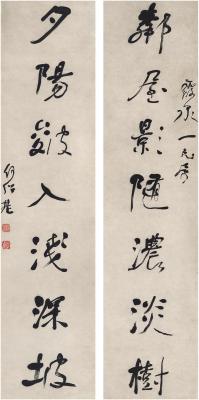 鄰屋影隨濃淡樹
夕陽皴入淺深坡
一兄
何紹基